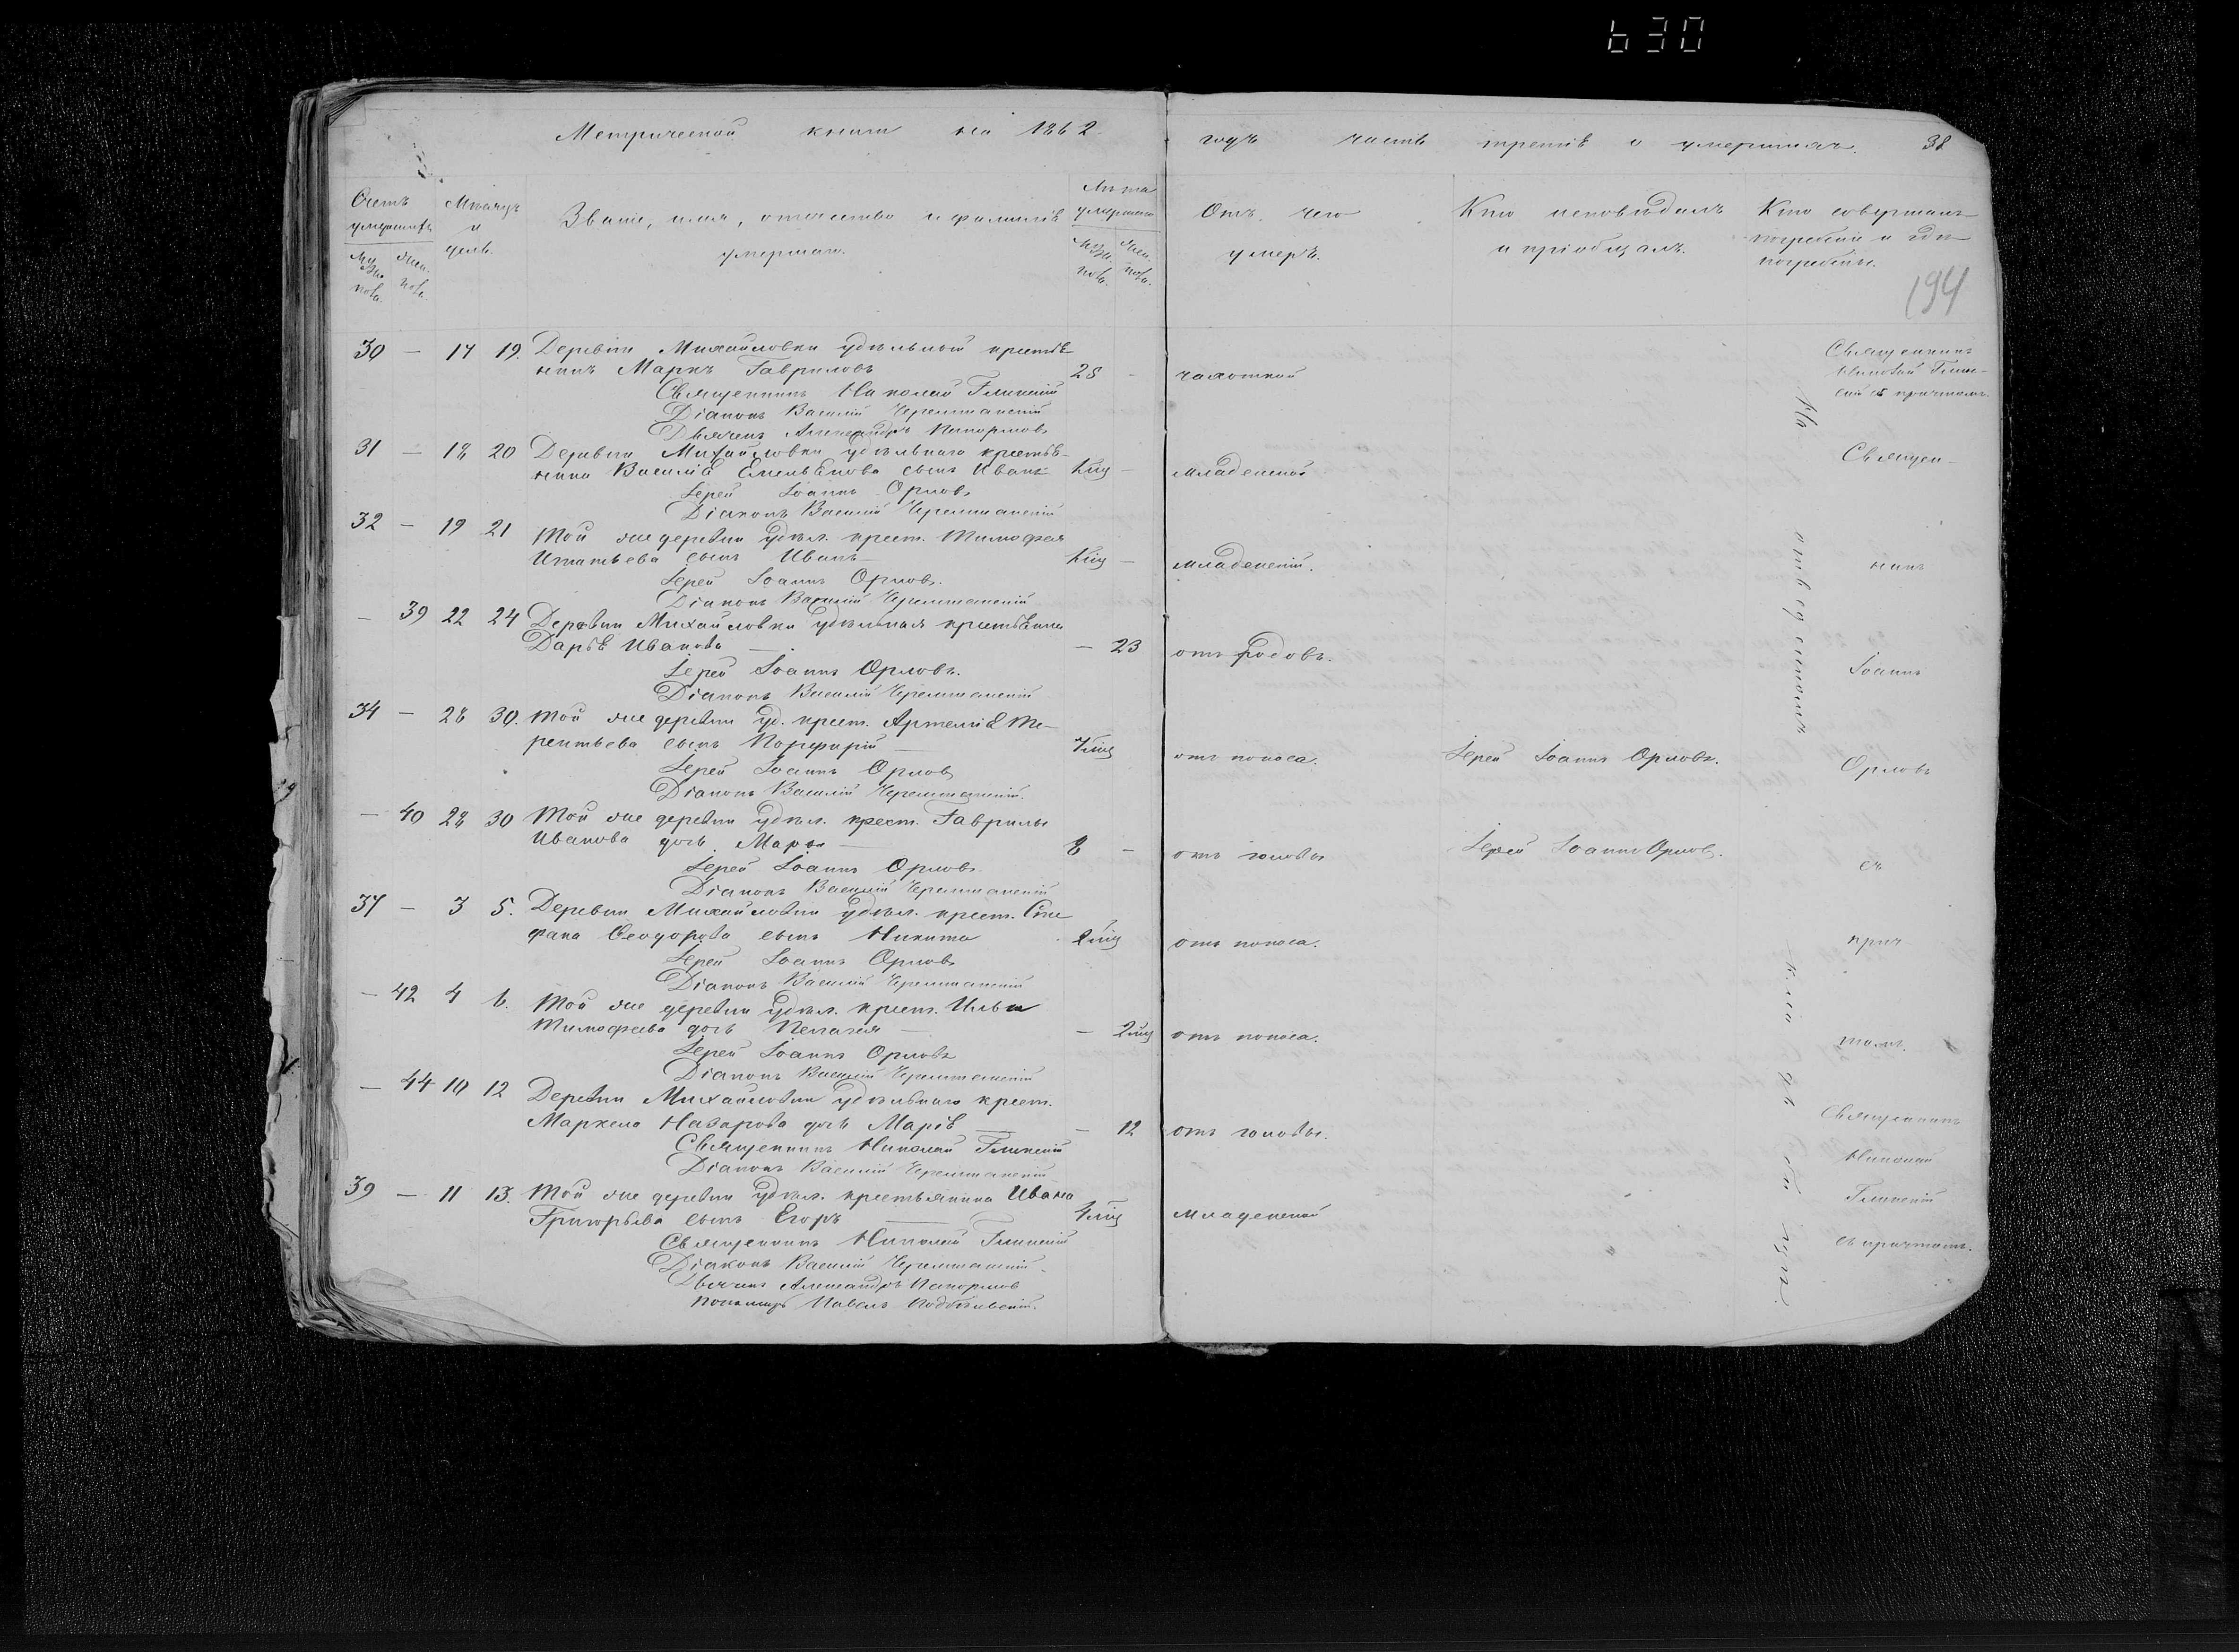 630
Метрической книги на 1862
годъ часть третія о умершихъ. 38
194
Счетъ умершихъ
Мужеска пола.
Женска пола.
Мѣсяцъ и день.
Званіе, имя, отчество и фамилія умершаго.
Лѣта умершаго
Мужеска пола.
Женска пола.
Отъ чего умеръ.
Кто исповѣдалъ и пріобщалъ.
Кто совершалъ погребеніе и гдѣ погребены.
30 — 17 19. Деревни Михайловки удѣльный крестья-
нинъ Маркъ Гавриловъ 28 — чахоткой
Священникъ Николай Глинскій
Діаконъ Василій Черемшанскій
Дьячекъ Александръ
31 — 18 20 Деревни Михайловки удѣльнаго крестья-
нина Василія Емельянова сынъ Иванъ — младенской
Іерей Іоаннъ Орловъ
Діаконъ Василій Черемшанскій
32 — 19 21 Той же деревни удѣл. крест. Тимофея
Игнатьева сынъ Иванъ — младенской.
Іерей Іоаннъ Орловъ.
Діаконъ Василій Черемшанскій
— 39 22 24 Деревни Михайловки удѣльная крестьянка
Дарья Иванова — — 23 отъ родовъ.
Іерей Іоаннъ Орловъ.
Діаконъ Василій Черемшанскій
34 — 28 30. Той же деревни уд. крест. Артемія Те-
рентьева сынъ Порфирій — отъ поноса. Іерей Іоаннъ Орловъ.
Іерей Іоаннъ Орловъ
Діаконъ Василій Черемшанскій.
— 40 28 30 Той же деревни удѣл. крест. Гаврилы
Иванова дочь Мар — 8 — отъ головы Іерей Іоаннъ Орловъ.
Іерей Іоаннъ Орловъ
Діаконъ Василій Черемшанскій
37 — 3 5. Деревни Михайловки удѣл. крест. Сте
фана Ѳеодорова сынъ Никита отъ поноса.
Іерей Іоаннъ Орловъ
Діаконъ Василій Черемшанскій
— 42 4 6. Той же деревни удѣл. крест. Ильи
Тимофеева дочь Пелагея — — 2 отъ поноса.
Іерей Іоаннъ Орловъ
Діаконъ Василій Черемшанскій
— 44 10 12 Деревни Михайловки удѣльнаго крест.
Маркела Назарова дочь Марія — — 12 отъ головы.
Священникъ Николай Глинскій
Діаконъ Василій Черемшанскій
39 — 11 13. Той же деревни удѣл. крестьянина Ивана
Григорьева сынъ Егоръ — младенской
Священникъ Николай Глинскій
Діаконъ Василій Черемшанскій
Дьячекъ Александръ
Пономарь Павелъ
Священникъ
Николай Глин-
скій съ причтомъ.
Священ-
никъ
Іоаннъ
Орловъ
съ
прич
томъ.
Священникъ
Николай
Глинскій
съ причтомъ.
На отведенномъ кладбищѣ.